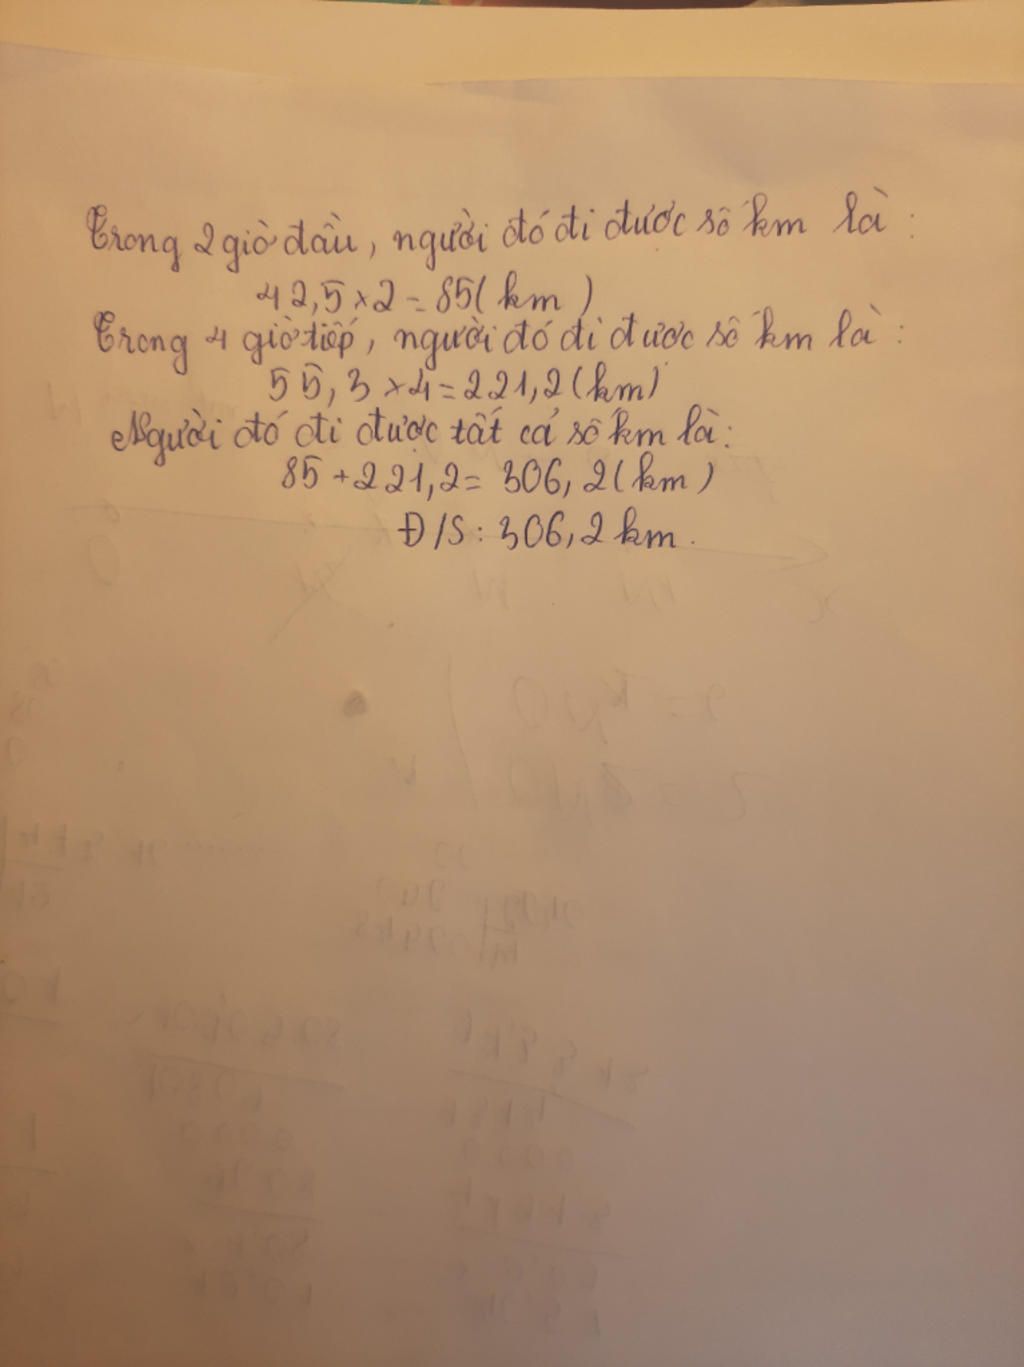 Trong 2 giờ đầu, người đó đi được số km là:
42,5 × 2 = 85 (km)
Trong 4 giờ tiếp, người đó đi được số km là:
55,3 × 4 = 221,2 (km)
Người đó đi được tất cả số km là:
85 + 221,2 = 306,2 (km)
Đ/S: 306,2 km.